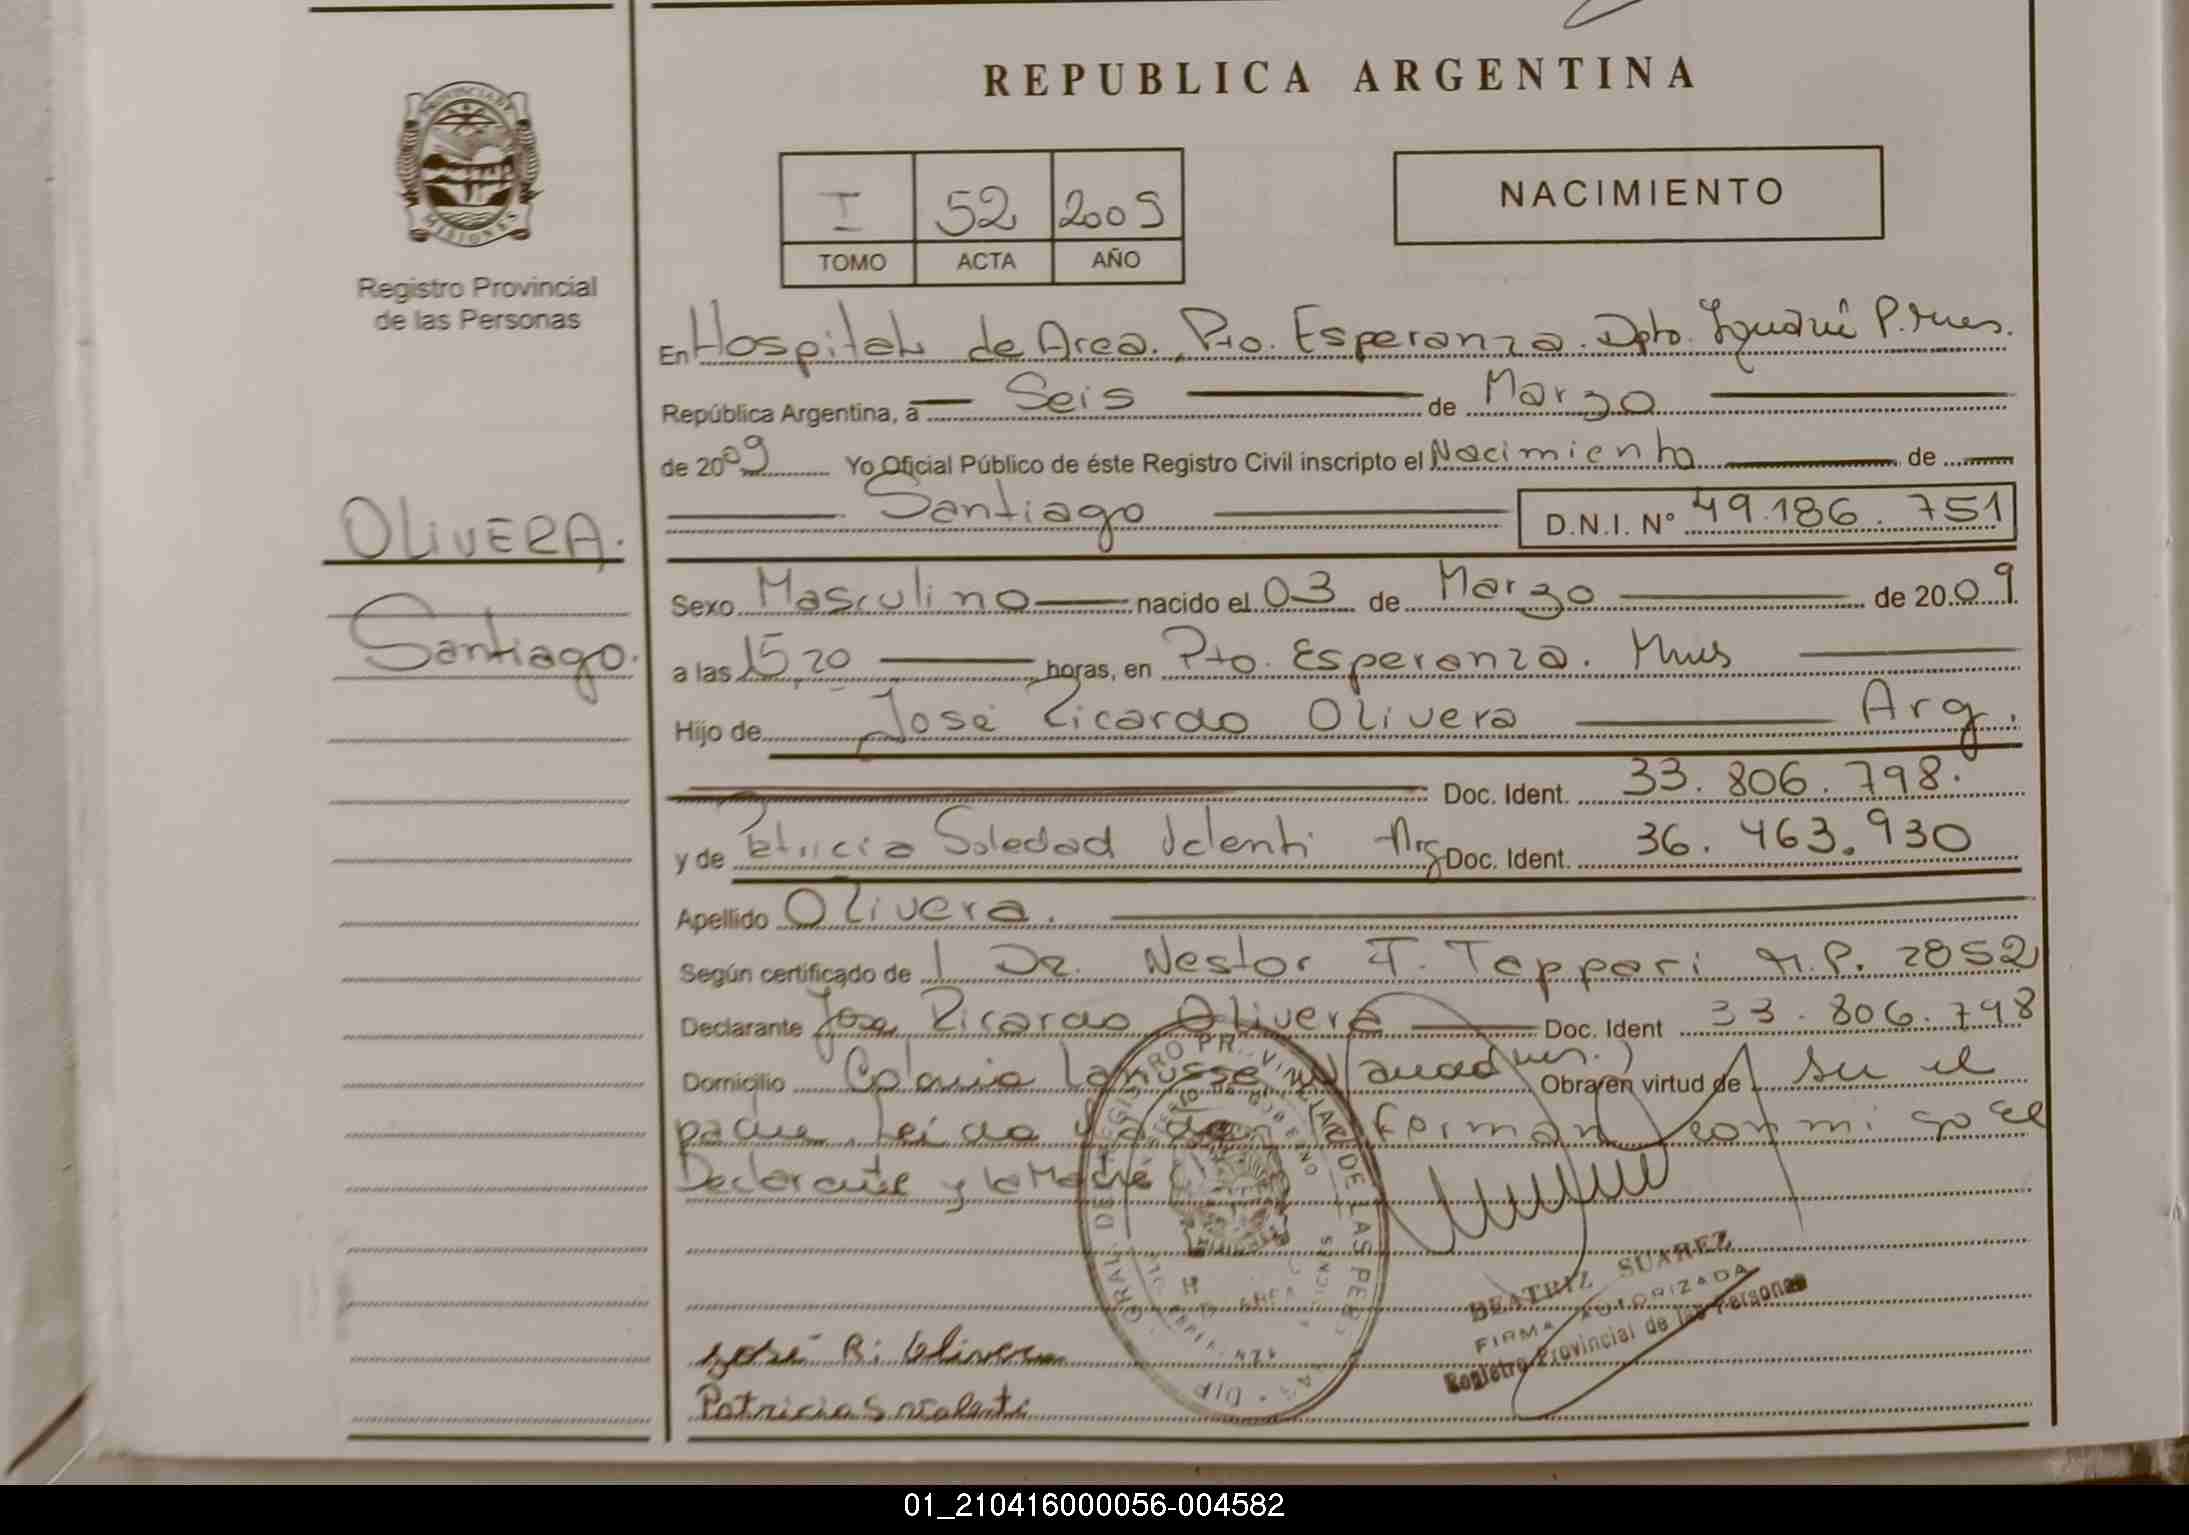 REPUBLICA ARGENTINA
PROVINCIA DE
MISIONES
Registro Provincial
de las Personas
I 52 2009
TOMO ACTA AÑO
NACIMIENTO
En Hospital de Area. Pto. Esperanza. Dpto. Iguazú P. Mnes.
República Argentina, a Seis de Marzo
de 2009 Yo Oficial Público de éste Registro Civil inscripto el Nacimiento de
Santiago D.N.I. Nº 49.186.751
OLIVERA.
Santiago.
Sexo Masculino nacido el 03 de Marzo de 2009
a las 15,20 horas, en Pto. Esperanza. Mnes
Hijo de José Ricardo Olivera Arg.
Doc. Ident. 33.806.798.
y de Patricia Soledad Valenti Arg Doc. Ident. 36.463.930
Apellido Olivera.
Según certificado de Dr. Nestor F. Tappari M.P. 2852
Declarante Jose Ricardo Olivera Doc. Ident 33.806.798
Domicilio Colonia Lanusse Obra en virtud de Ser el
padre. Leida el acta Forman conmigo el
Declarante y la Madre
BEATRIZ SUAREZ
FIRMA AUTORIZADA
Registro Provincial de las Personas
José R. Olivera
Patricia S Valenti
01_210416000056-004582